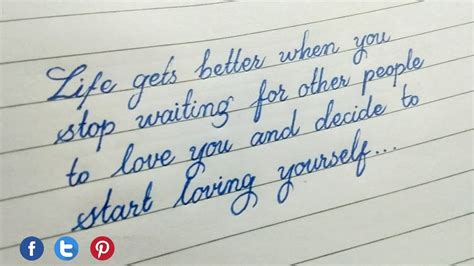 Life gets better when you
stop waiting for other people
to love you and decide to
start loving yourself...